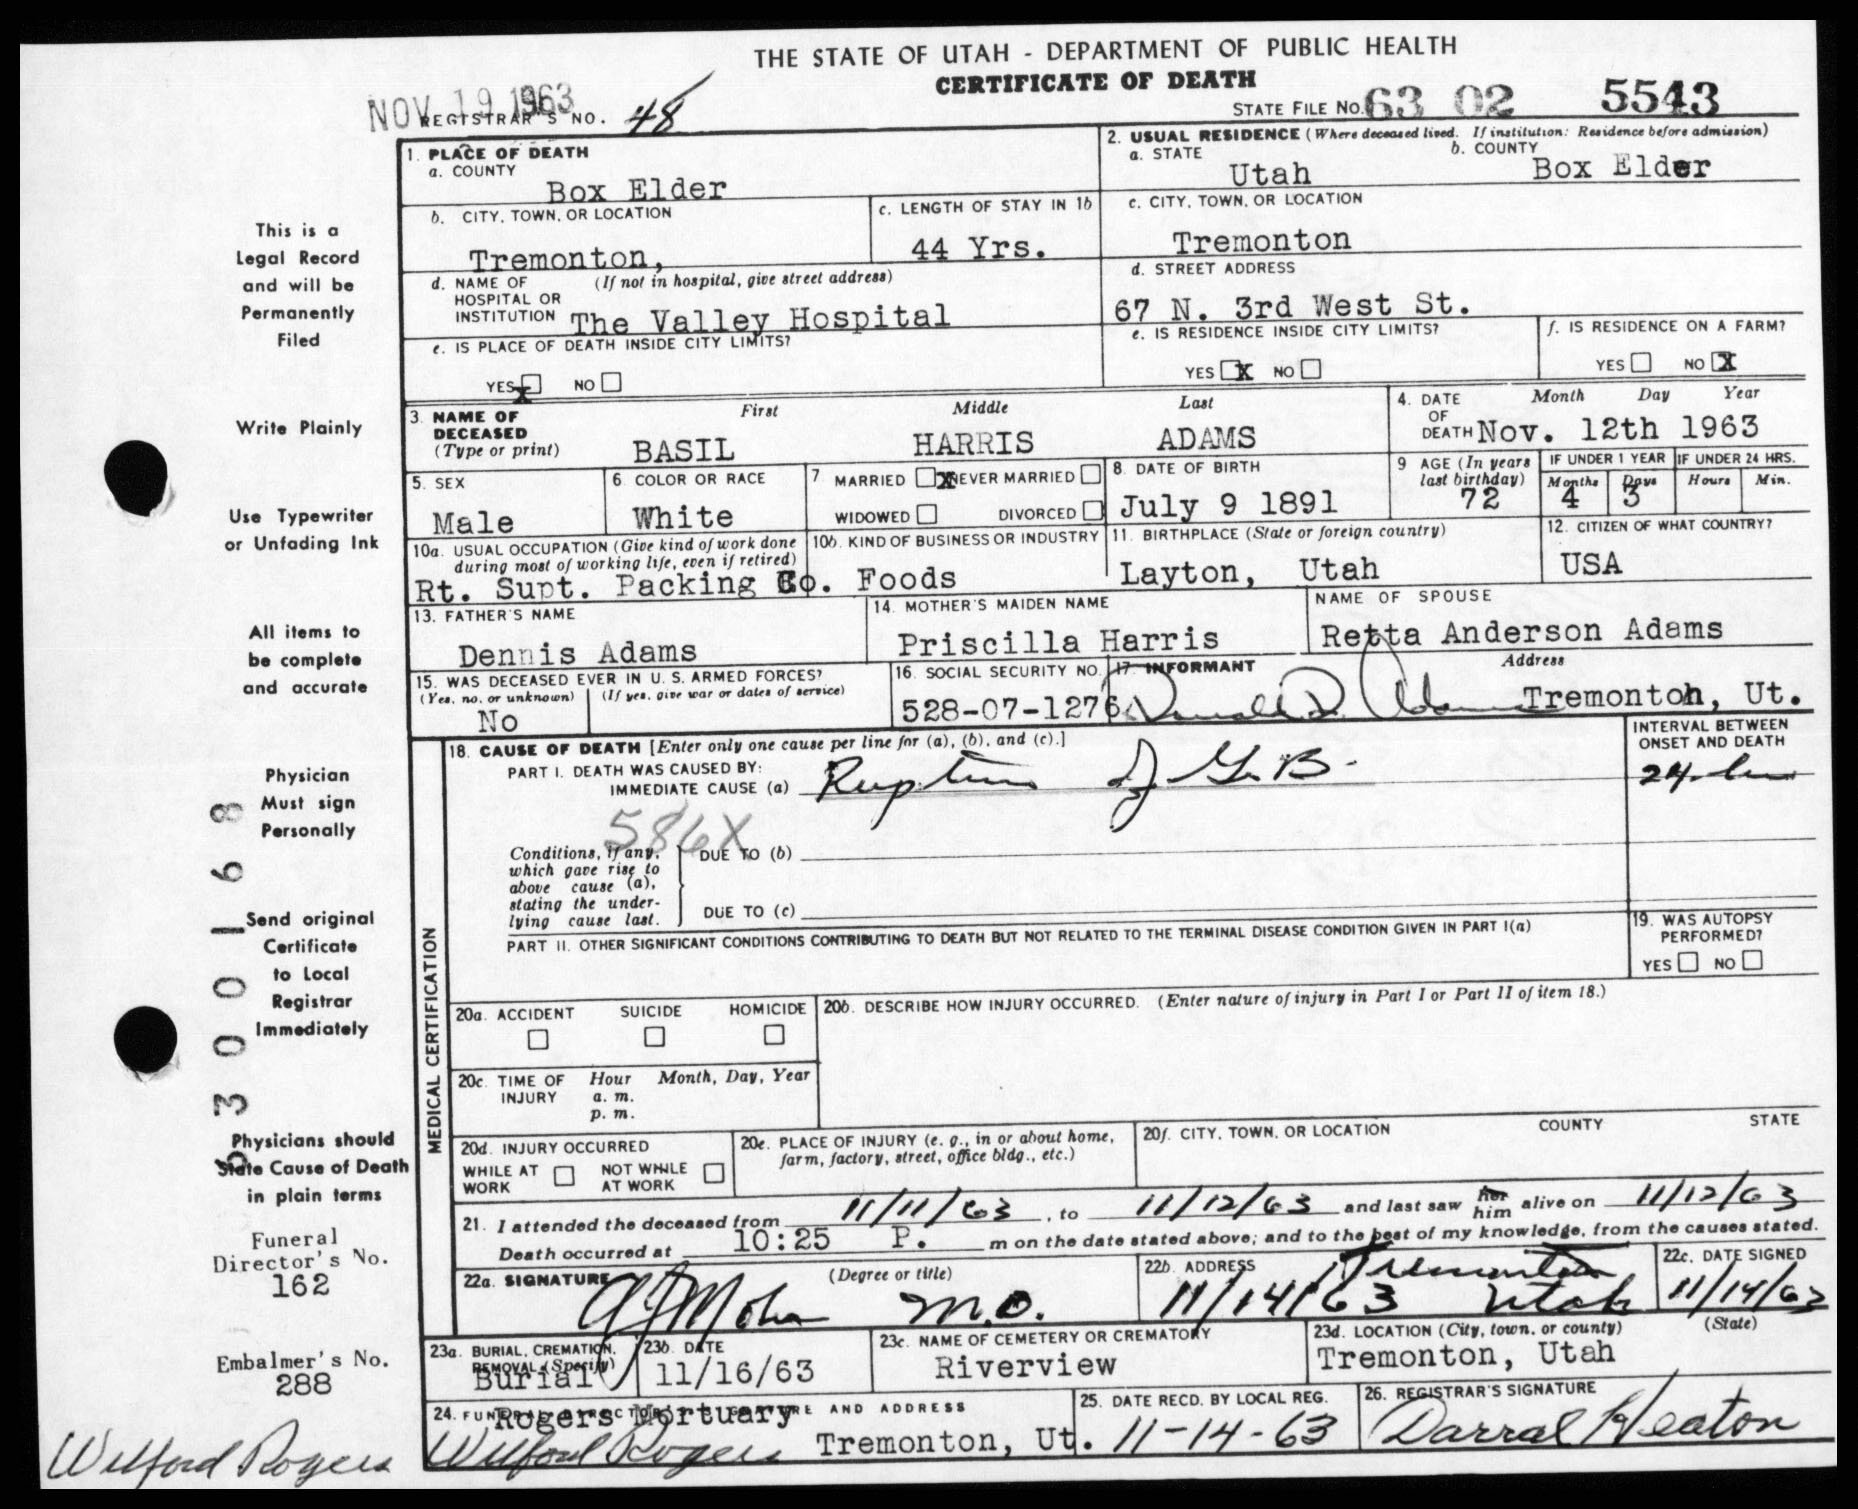 THE STATE OF UTAH - DEPARTMENT OF PUBLIC HEALTH
CERTIFICATE OF DEATH
NOV 19 1963
REGISTRAR'S NO. 48
STATE FILE NO. 63 02 5543
1. PLACE OF DEATH
a. COUNTY
Box Elder
2. USUAL RESIDENCE (Where deceased lived. If institution: Residence before admission)
a. STATE
Utah
b. COUNTY
Box Elder
b. CITY, TOWN, OR LOCATION
Tremonton,
c. LENGTH OF STAY IN 1b
44 Yrs.
c. CITY, TOWN, OR LOCATION
Tremonton
d. NAME OF HOSPITAL OR INSTITUTION (If not in hospital, give street address)
The Valley Hospital
d. STREET ADDRESS
67 N. 3rd West St.
e. IS PLACE OF DEATH INSIDE CITY LIMITS?
YES X NO
e. IS RESIDENCE INSIDE CITY LIMITS?
YES X NO
f. IS RESIDENCE ON A FARM?
YES NO X
3. NAME OF DECEASED (Type or print)
First Middle Last
BASIL HARRIS ADAMS
4. DATE OF DEATH
Month Day Year
Nov. 12th 1963
5. SEX
Male
6. COLOR OR RACE
White
7. MARRIED X NEVER MARRIED
WIDOWED DIVORCED
8. DATE OF BIRTH
July 9 1891
9 AGE (In years last birthday)
72
IF UNDER 1 YEAR
Months Days
4 3
IF UNDER 24 HRS.
Hours Min.
10a. USUAL OCCUPATION (Give kind of work done during most of working life, even if retired)
Rt. Supt. Packing Co.
10b. KIND OF BUSINESS OR INDUSTRY
Foods
11. BIRTHPLACE (State or foreign country)
Layton, Utah
12. CITIZEN OF WHAT COUNTRY?
USA
13. FATHER'S NAME
Dennis Adams
14. MOTHER'S MAIDEN NAME
Priscilla Harris
NAME OF SPOUSE
Retta Anderson Adams
15. WAS DECEASED EVER IN U. S. ARMED FORCES?
(Yes, no, or unknown) (If yes, give war or dates of service)
No
16. SOCIAL SECURITY NO.
528-07-1276
17. INFORMANT Address
Adams Tremonton, Ut.
MEDICAL CERTIFICATION
18. CAUSE OF DEATH [Enter only one cause per line for (a), (b), and (c).]
INTERVAL BETWEEN ONSET AND DEATH
PART I. DEATH WAS CAUSED BY:
IMMEDIATE CAUSE (a) Rupture of G. B.
586X
Conditions, if any, which gave rise to above cause (a), stating the underlying cause last.
DUE TO (b)
DUE TO (c)
PART II. OTHER SIGNIFICANT CONDITIONS CONTRIBUTING TO DEATH BUT NOT RELATED TO THE TERMINAL DISEASE CONDITION GIVEN IN PART I(a)
19. WAS AUTOPSY PERFORMED?
YES NO
20a. ACCIDENT SUICIDE HOMICIDE
20b. DESCRIBE HOW INJURY OCCURRED. (Enter nature of injury in Part I or Part II of item 18.)
20c. TIME OF INJURY
Hour Month, Day, Year
a. m.
p. m.
20d. INJURY OCCURRED
WHILE AT WORK NOT WHILE AT WORK
20e. PLACE OF INJURY (e. g., in or about home, farm, factory, street, office bldg., etc.)
20f. CITY, TOWN, OR LOCATION COUNTY STATE
21. I attended the deceased from 11/11/63, to 11/12/63 and last saw her him alive on 11/12/63
Death occurred at 10:25 P. m on the date stated above; and to the best of my knowledge, from the causes stated.
22a. SIGNATURE (Degree or title)
M.D.
22b. ADDRESS
Tremonton
11/14/63 Utah
22c. DATE SIGNED
11/14/63
23a. BURIAL, CREMATION, REMOVAL (Specify)
Burial
23b. DATE
11/16/63
23c. NAME OF CEMETERY OR CREMATORY
Riverview
23d. LOCATION (City, town, or county) (State)
Tremonton, Utah
24. FUNERAL DIRECTOR'S SIGNATURE AND ADDRESS
Rogers Mortuary
Wilford Rogers Tremonton, Ut.
25. DATE RECD. BY LOCAL REG.
11-14-63
26. REGISTRAR'S SIGNATURE
Darral Heaton
This is a
Legal Record
and will be
Permanently
Filed
Write Plainly
Use Typewriter
or Unfading Ink
All items to
be complete
and accurate
Physician
Must sign
Personally
Send original
Certificate
to Local
Registrar
Immediately
Physicians should
State Cause of Death
in plain terms
Funeral
Director's No.
162
Embalmer's No.
288
Wilford Rogers